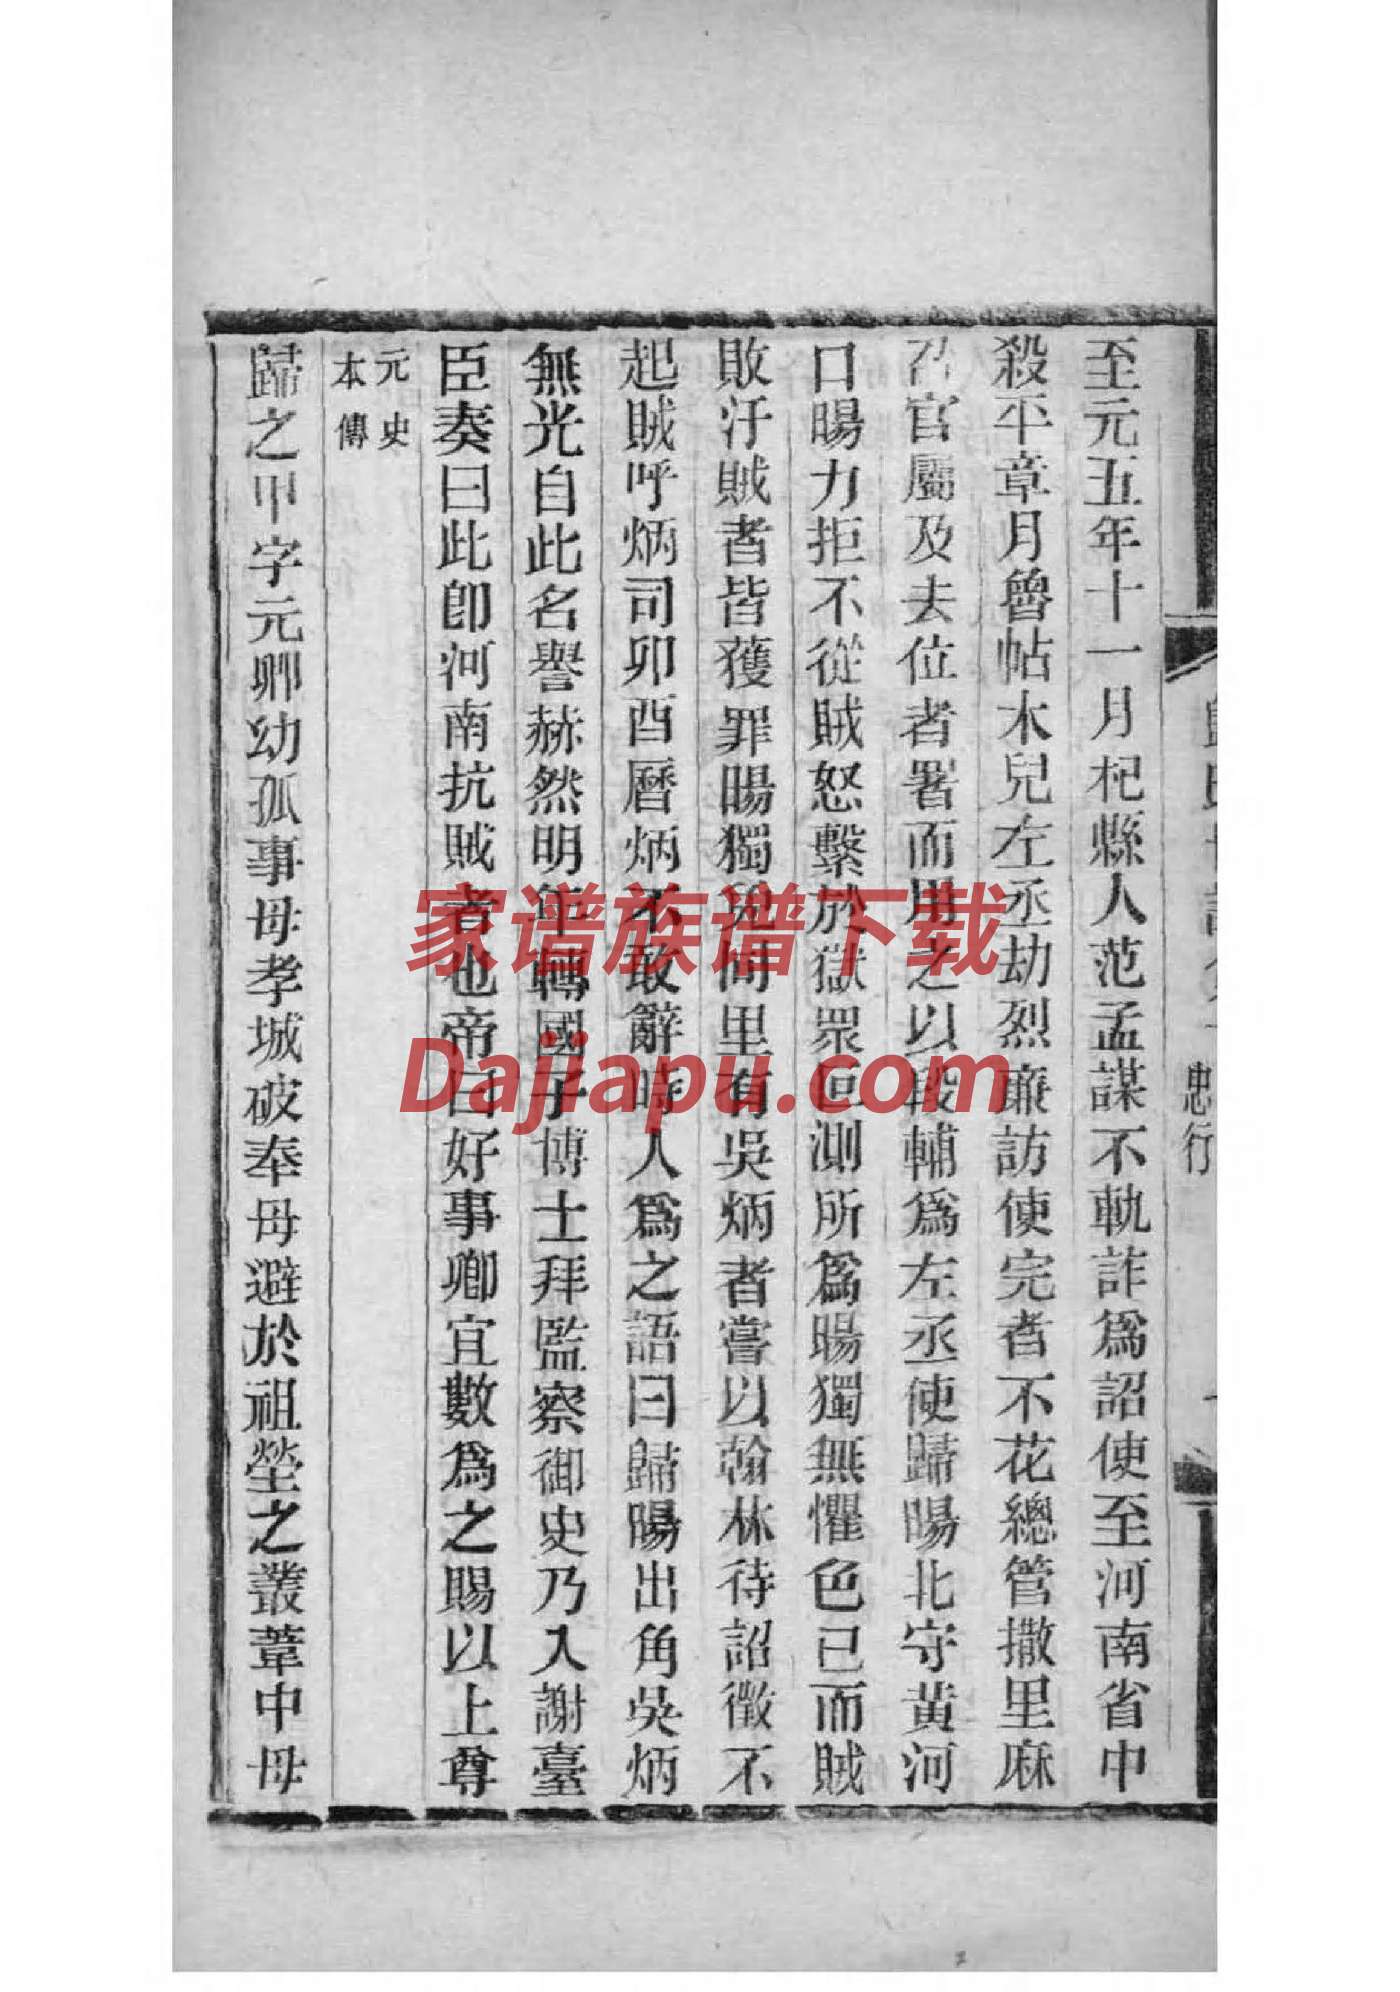 至元五年十一月杞縣人范孟謀不軌詐爲詔使至河南省中
殺平章月魯帖木兒左丞劫烈廉訪使完者不花總管撒里麻
召官屬及去位者署而用之以段輔爲左丞使歸暘北守黄河
口暘力拒不從賊怒繫於獄眾叵測所爲暘獨無懼色已而賊
敗汙賊者皆獲罪暘獨免同里有吳炳者嘗以翰林待詔徵不
起賊呼炳司卯酉曆炳不敢辭時人爲之語曰歸暘出角吳炳
無光自此名譽赫然明年轉國子博士拜監察御史乃入謝臺
臣奏曰此卽河南抗賊者也帝曰好事卿宜數爲之賜以上尊
元史
本傳
歸之甲字元卿幼孤事母孝城破奉母避於祖塋之叢葦中母
忠行
家谱族谱下载
Dajiapu.com